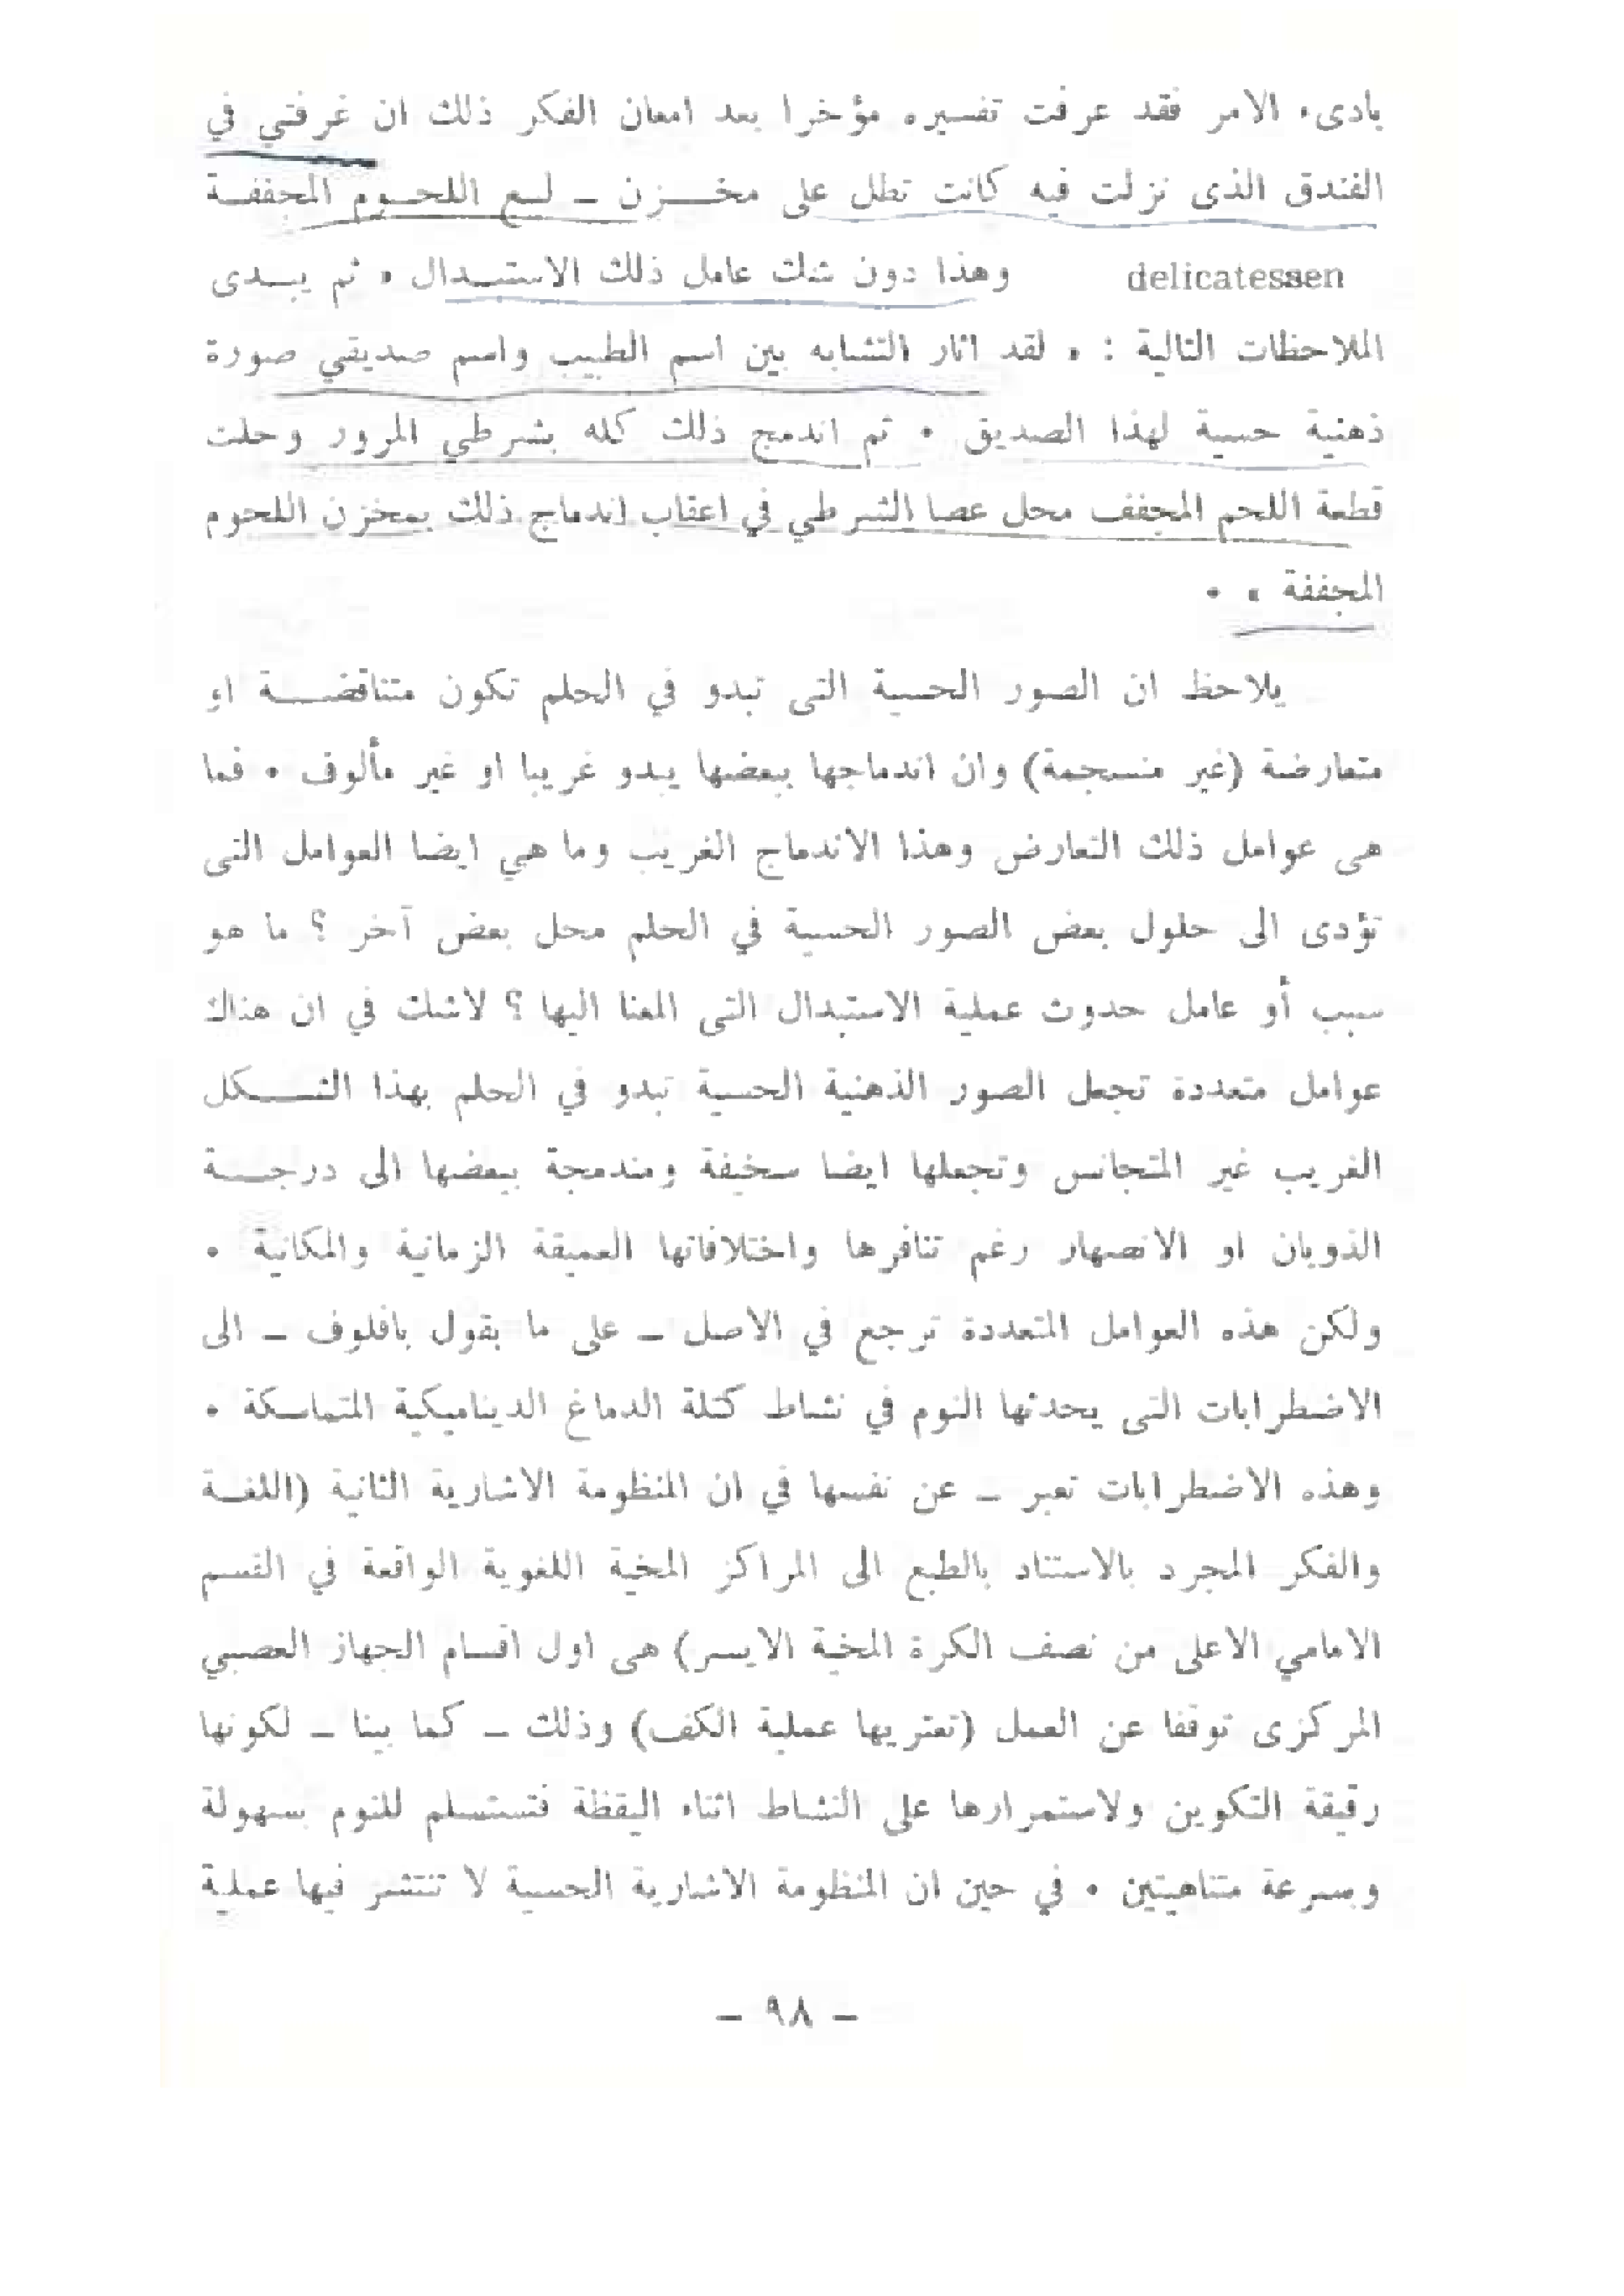 بادىء الامر فقد عرفت تفسيره مؤخرا بعد امعان الفكر ذلك ان غرفتي في
الفندق الذى نزلت فيه كانت تطل على مخـــزن ــ لبيع اللحــوم المجففــة
delicatessen وهذا دون شك عامل ذلك الاستبــدال • ثم يبــدى
الملاحظات التالية : « لقد اثار التشابه بين اسم الطبيب واسم صديقي صورة
ذهنية حسية لهذا الصديق • ثم اندمج ذلك كله بشرطي المرور وحلت
قطعة اللحم المجفف محل عصا الشرطي في اعقاب اندماج ذلك بمخزن اللحوم
المجففة » •
يلاحظ ان الصور الحسية التى تبدو في الحلم تكون متناقضــــة او
متعارضة (غير منسجمة) وان اندماجها ببعضها يبدو غريبا او غير مألوف • فما
هى عوامل ذلك التعارض وهذا الاندماج الغريب وما هي ايضا العوامل التى
تؤدى الى حلول بعض الصور الحسية في الحلم محل بعض آخر ؟ ما هو
سبب أو عامل حدوث عملية الاستبدال التى المعنا اليها ؟ لاشك في ان هناك
عوامل متعددة تجعل الصور الذهنية الحسية تبدو في الحلم بهذا الشــــكل
الغريب غير المتجانس وتجعلها ايضا سخيفة ومندمجة ببعضها الى درجــة
الذوبان او الانصهار رغم تنافرها واختلافاتها العميقة الزمانية والمكانية •
ولكن هذه العوامل المتعددة ترجع في الاصل ــ على ما يقول بافلوف ــ الى
الاضطرابات التى يحدثها النوم في نشاط كتلة الدماغ الديناميكية المتماسكة •
وهذه الاضطرابات تعبر ــ عن نفسها في ان المنظومة الاشارية الثانية (اللغــة
والفكر المجرد بالاستناد بالطبع الى المراكز المخية اللغوية الواقعة في القسم
الامامي الاعلى من نصف الكرة المخية الايسر) هى اول اقسام الجهاز العصبي
المركزى توقفا عن العمل (تعتريها عملية الكف) وذلك ــ كما بينا ــ لكونها
رقيقة التكوين ولاستمرارها على النشاط اثناء اليقظة فتستسلم للنوم بسهولة
وبسرعة متناهيتين • في حين ان المنظومة الاشارية الحسية لا تنتشر فيها عملية
ــ ٩٨ ــ